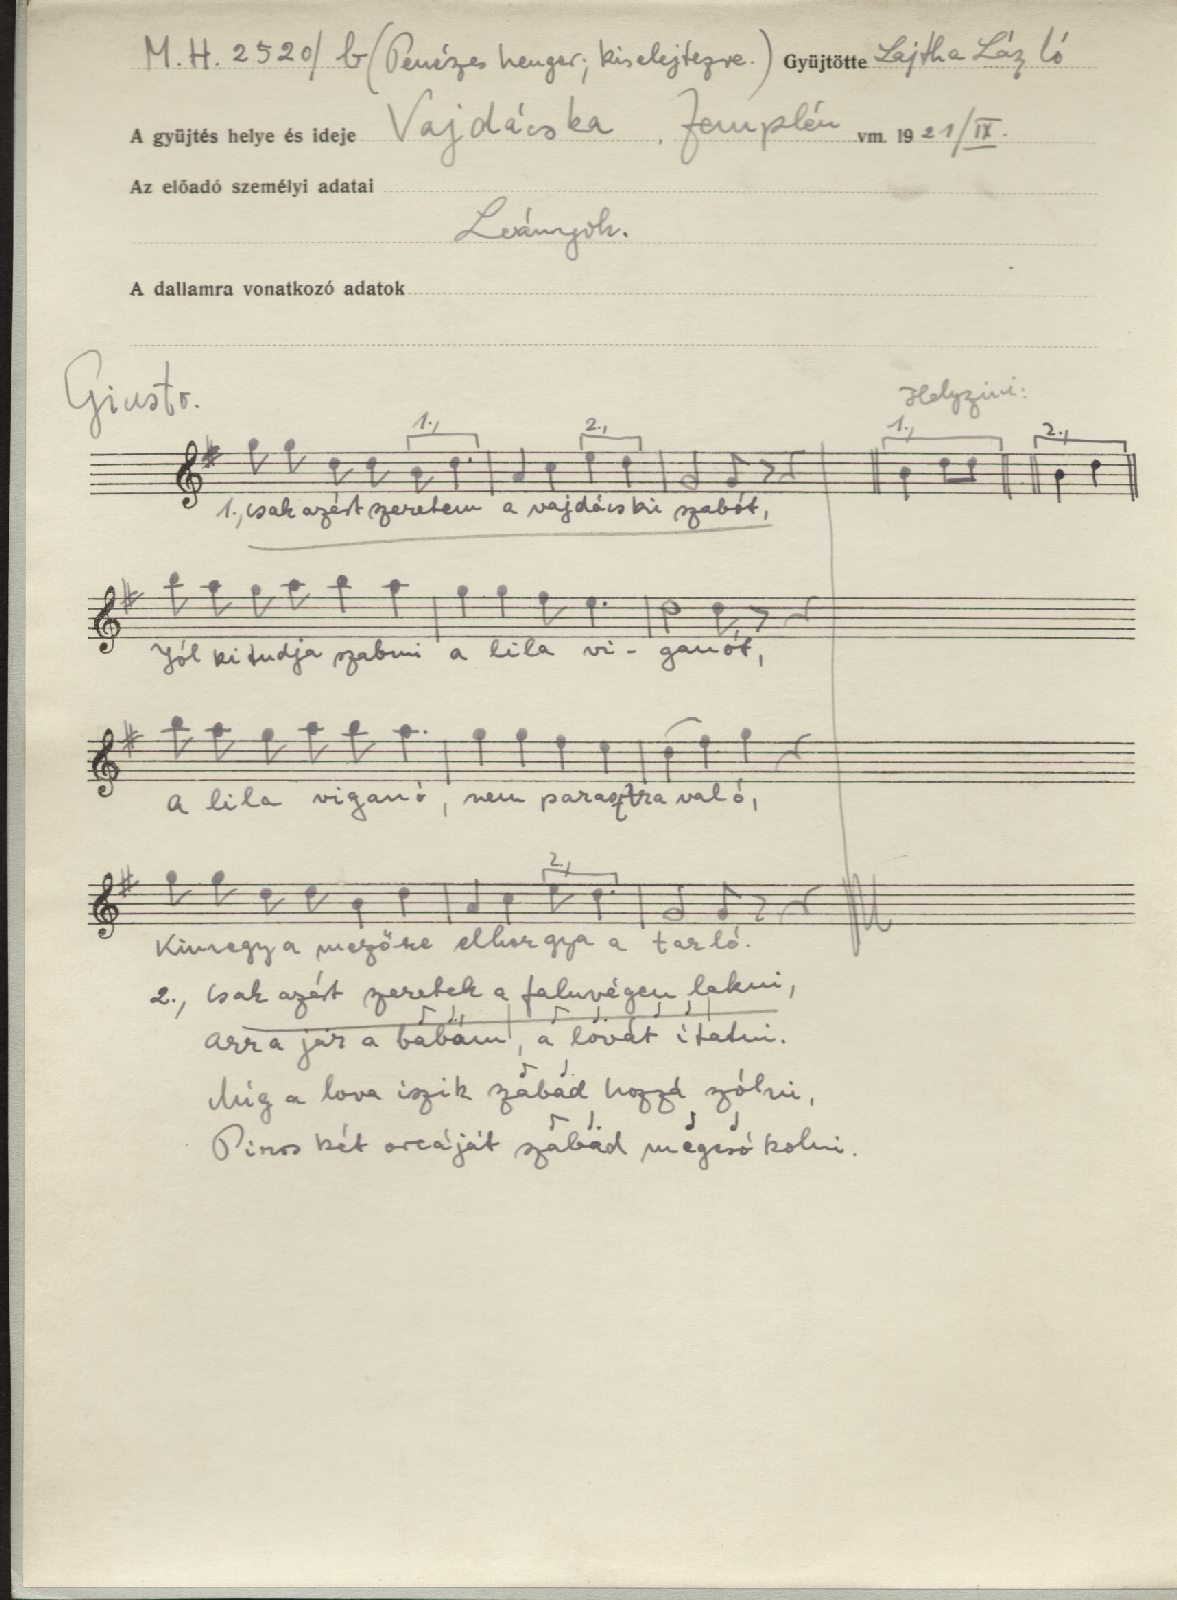 M. H. 2520/b (Penészes henger; kiselejtezve.) Gyüjtötte Lajtha László
A gyüjtés helye és ideje Vajdácska, Zemplén vm. 1921/IX.
Az előadó személyi adatai
Leányok.
A dallamra vonatkozó adatok
Giusto.
Helyzini:
1., 2., 1., 2.,
1., Csak azért szeretem a vajdácski szabót,
Jól ki tudja szabni a lila vi - ganót,
A lila viganó, nem parasztra való,
2.,
Kimegy a mezőre elhorgya a tarló.
2., Csak azért szeretek a faluvégen lakni,
Arra jár a babám, a lovát itatni.
Míg a lova iszik szabad hozzá szólni,
Piros két orcáját szabad megcsókolni.